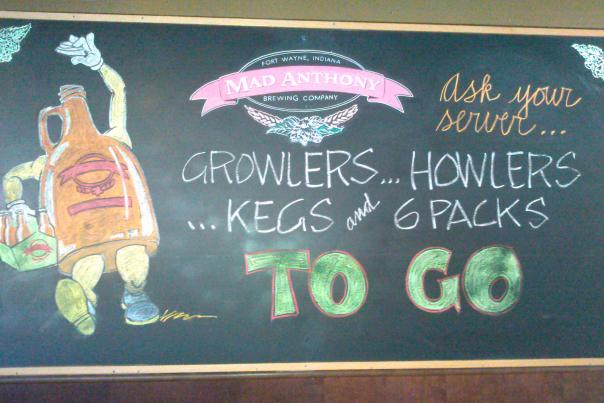 FORT WAYNE, INDIANA
MAD ANTHONY
BREWING COMPANY
Ask your
server...
GROWLERS... HOWLERS
...KEGS and 6 PACKS
TO GO